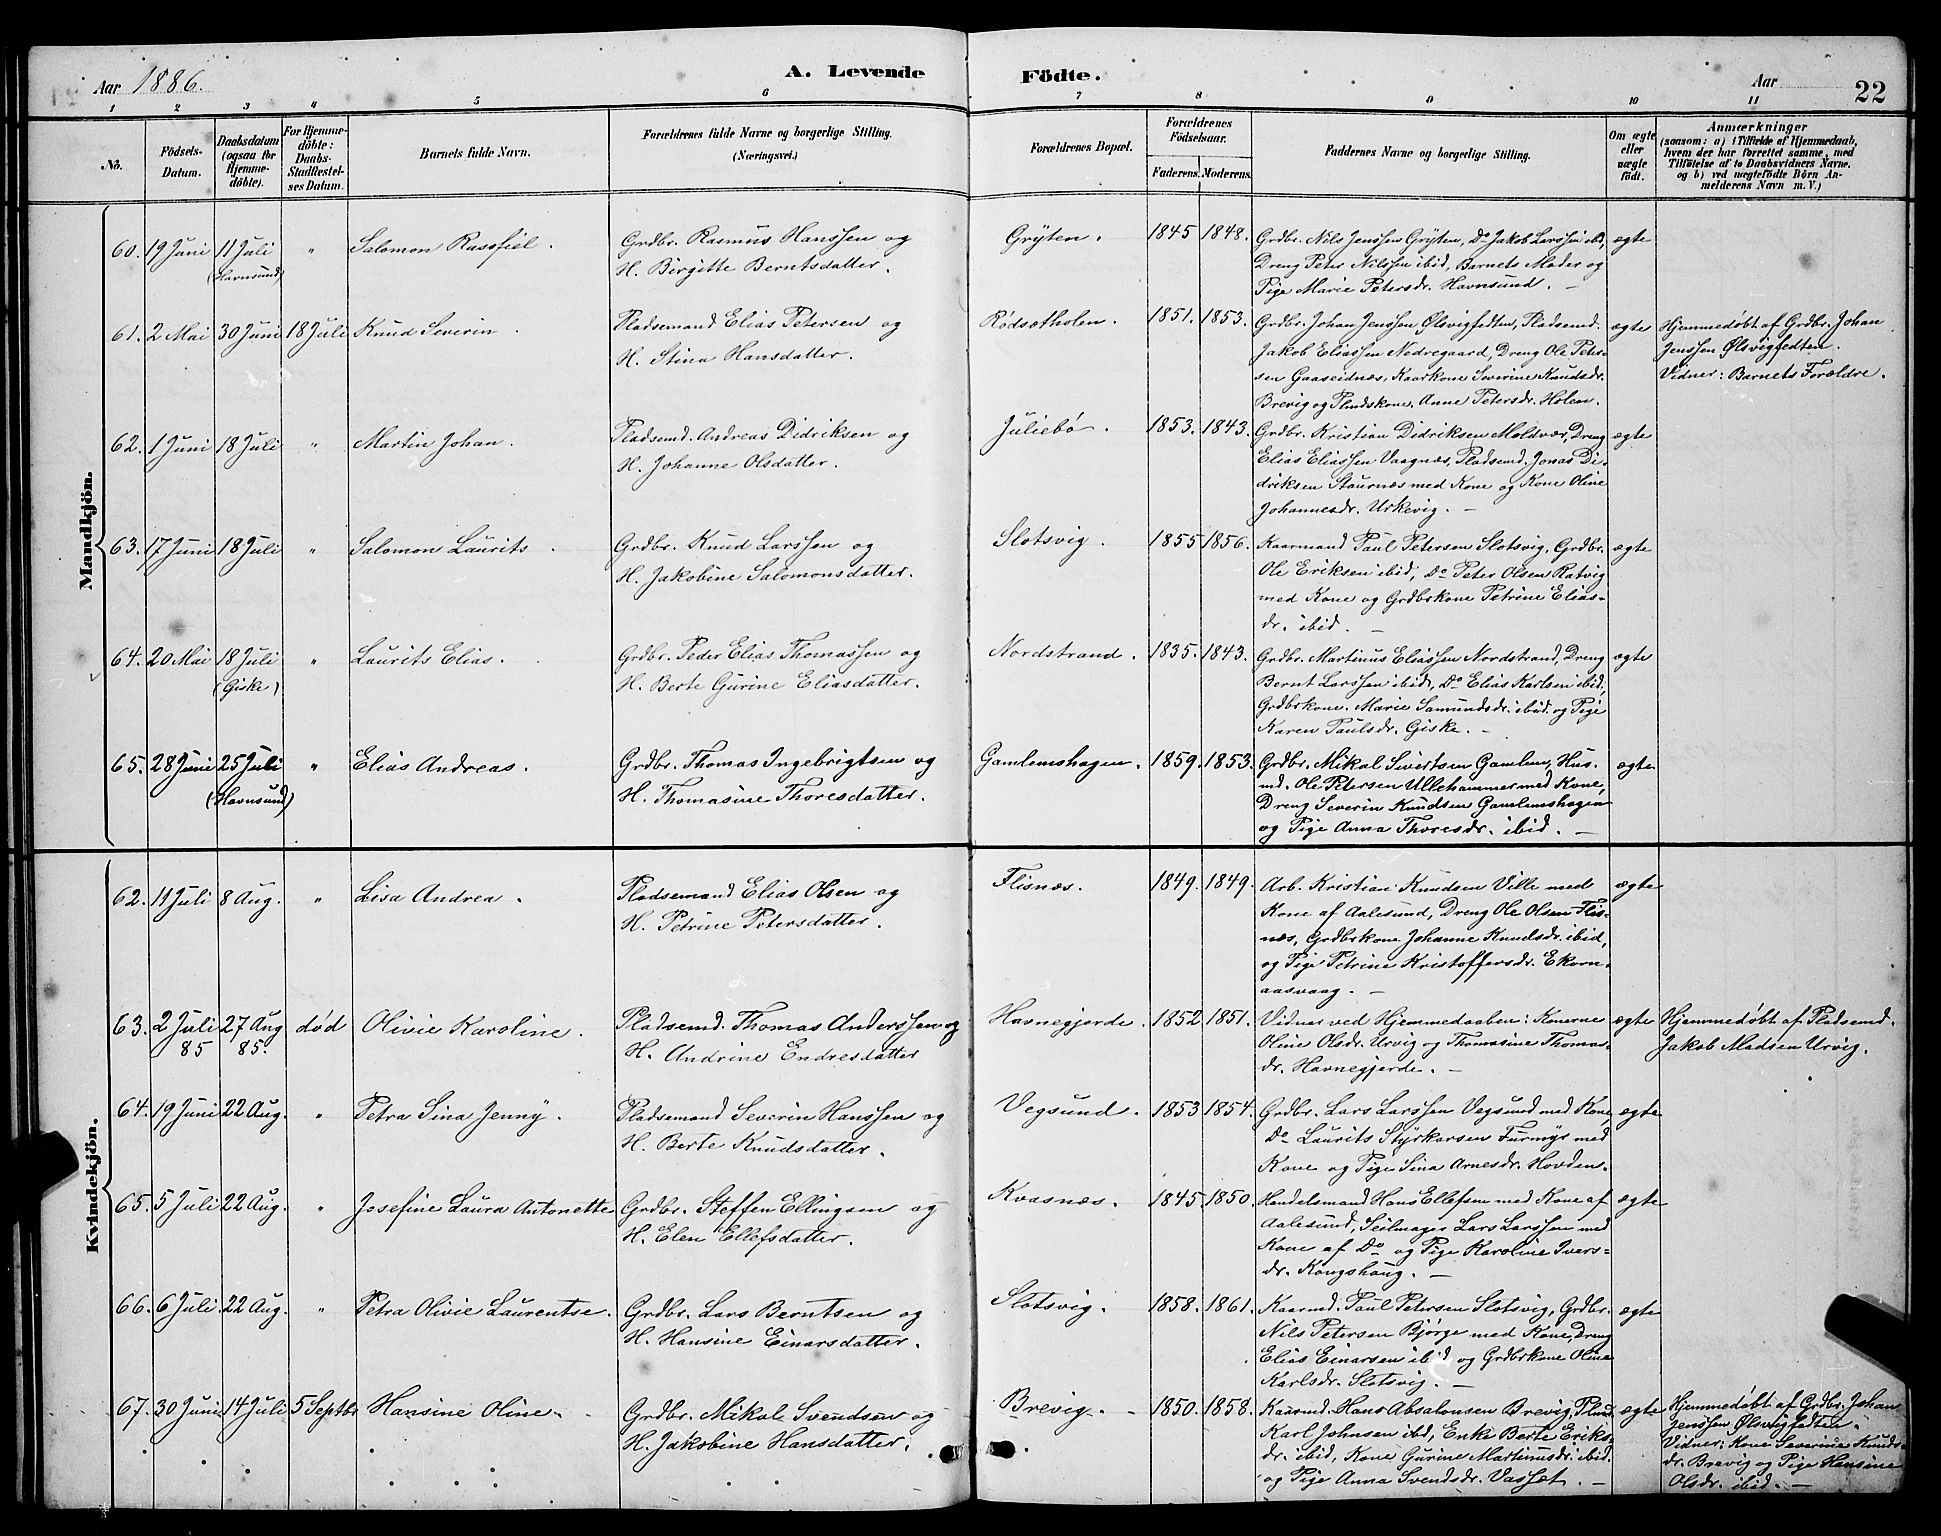 Aar 1886.
A. Levende Födte.
Aar
22
1 2 3 4 5 6 7 8 9 10 11
No.
Födsels-Datum.
Daabsdatum (ogsaa for Hjemme-döbte).
For Hjemme-döbte: Daabs-Stadfæstel-ses Datum.
Barnets fulde Navn.
Forældrenes fulde Navne og borgerlige Stilling. (Næringsvei.)
Forældrenes Bopæl.
Forældrenes Födselsaar.
Faderens. Moderens.
Faddernes Navne og borgerlige Stilling.
Om ægte eller uægte födt.
Anmærkninger
(saasom: a) i Tilfælde af Hjemmedaab, hvem der har forrettet samme, med Tilföielse af to Daabsvidners Navne, og b) ved uægtefödte Börn An-melderens Navn m. V.)
Mandkjön.
60. 19 Juni 11 Juli (Havnsund) " Salomon Rasfiel. Grdbr. Rasmus Hanssen og
H. Birgitte Berntsdatter. Gryten. 1845 1848. Grdbr. Nils Jenssen Gryten, Do Jakob Larssen ibd,
Dreng Peter Nilssen ibid, Barnets Moder og
Pige Marie Petersdr. Havnsund. — ægte
61. 2 Mai 30 Juni 18 Juli Knud Severin. Pladsemand Elias Petersen og
H. Stina Hansdatter. Rødsætholen. 1851. 1853. Grdbr. Johan Jenssen Ølsvigfedten, Pladsemd.
Jakob Eliassen Nedregaard, Dreng Ole Peter-
sen Gaaseidnæs, Kaarkone Severine Knudsdr.
Brevig og Pladskone. Anne Petersdr. Holen. ægte Hjemmedøbt af Grdbr. Johan
Jenssen Ølsvigfedten.
Vidner: Barnets Forældre.
62. 1 Juni 18 Juli " Martin Johan. Pladsemd. Andreas Didriksen og
H. Johanne Olsdatter. Juliebø. 1853. 1843. Grdbr. Kristian Didriksen Moldvær, Dreng
Elias Eliassen Vaagnæs, Pladsemd. Jonas Di-
driksen Staurnæs med Kone og Kone Oline
Johannesdr. Urkevig. — ægte
63. 17 Juni 18 Juli " Salomon Laurits. Grdbr. Knud Larssen og
H. Jakobine Salomonsdatter. Slotsvig. 1855 1856. Kaarmand Paul Petersen Slotsvig, Grdbr.
Ole Eriksen ibid, Do Peter Olsen Ratvig
med Kone og Grdbrkone Petrine Elias-
dr. ibid. — ægte
64. 20 Mai 18 Juli (Giske) " Laurits Elias. Grdbr. Peder Elias Thomassen og
H. Berte Gurine Eliasdatter. Nordstrand. 1835. 1843. Grdbr. Martinus Eliassen Nordstrand, Dreng
Bernt Larssen ibid, Do Elias Karlsen ibid,
Grdbrkone. Marie Samundsdr. ibid. og Pige
Karen Paulsdr. Giske. — ægte
65. 28 Juni 25 Juli (Havnsund) " Elias Andreas. Grdbr. Thomas Ingebrigtsen og
H. Thomasine Thoresdatter. Gamlemshagen. 1859. 1853. Grdbr. Mikal Sivertsen Gamlem, Hus-
md. Ole Petersen Ullehammer med Kone,
Dreng Severin Knudsen Gamlemshagen
og Pige Anna Thoresdr. ibid. — ægte
Kvindekjön.
62. 11 Juli 8 Aug. " Lisa Andrea. Pladsemand Elias Olsen og
H. Petrine Petersdatter. Flisnæs. 1849. 1849. Arb. Kristian Knudsen Ville med
Kone af Aalesund, Dreng Ole Olsen Flis-
næs, Grdbrkone Johanne Knudsdr. ibid,
og Pige Petrine Kristoffersdr. Ekorn-
aasvaag. — ægte
63. 2 Juli 85 27 Aug 85. død Olivie Karoline. Pladsemd. Thomas Anderssen og
H. Andrine Endresdatter Havnegjerde. 1852 1851. Vidner ved Hjemmedaaben: Konerne
Oline Olsdr. Urvig og Thomasine Thomas-
dr. Havnegjerde. — ægte Hjemmedøbt af Pladsemd.
Jakob Madsen Urvig.
64. 19 Juni 22 Aug. " Petra Sina Jenny. Pladsemand Severin Hanssen og
H. Berte Knudsdatter. Vegsund. 1853 1854. Grdbr. Lars Larssen Vegsund med Kone,
Do Laurits Styrkarsen Furmyr med
Kone og Pige Sina Arnesdr. Hovden. ægte
65. 5 Juli 22 Aug. " Josefine Laura Antonette Grdbr. Steffen Ellingsen og
H. Elen Ellefsdatter. Kvasnæs. 1845. 1850. Handelsmand Hans Ellefsen med Kone af
Aalesund, Seilmager Lars Larssen med
Kone af Do og Pige Karoline Ivers-
dr. Kongshaug. — ægte
66. 6 Juli 22 Aug. " Petra Olivie Laurentse. Grdbr. Lars Berntsen og
H. Hansine Einarsdatter. Slotsvig. 1858. 1861. Kaarmd. Paul Petersen Slotsvig, Grdbr.
Nils Petersen Bjørge med Kone, Dreng
Elias Einarsen ibid og Grdbrkone Oline
Karlsdr. Slotsvig. — ægte
67. 30 Juni 14 Juli 5 Septbr Hansine Oline. Grdbr. Mikal Svendsen og
H. Jakobine Hansdatter. Brevig. 1850. 1858. Kaarmd. Hans Absalonsen Brevig, Plmd
Karl Johnsen ibd, Enke Berte Eriks-
dr. ibid, Kone Gurine Martinusdr. ibid.
og Pige Anna Svendsdr. Vasset. — ægte Hjemmedøbt af Grdbr. Johan
Jenssen Ølsvigfedten.
Vidner: Kone Severine Knuds-
dr. Brevig og Pige Hansine
Olsdr. ibid. —